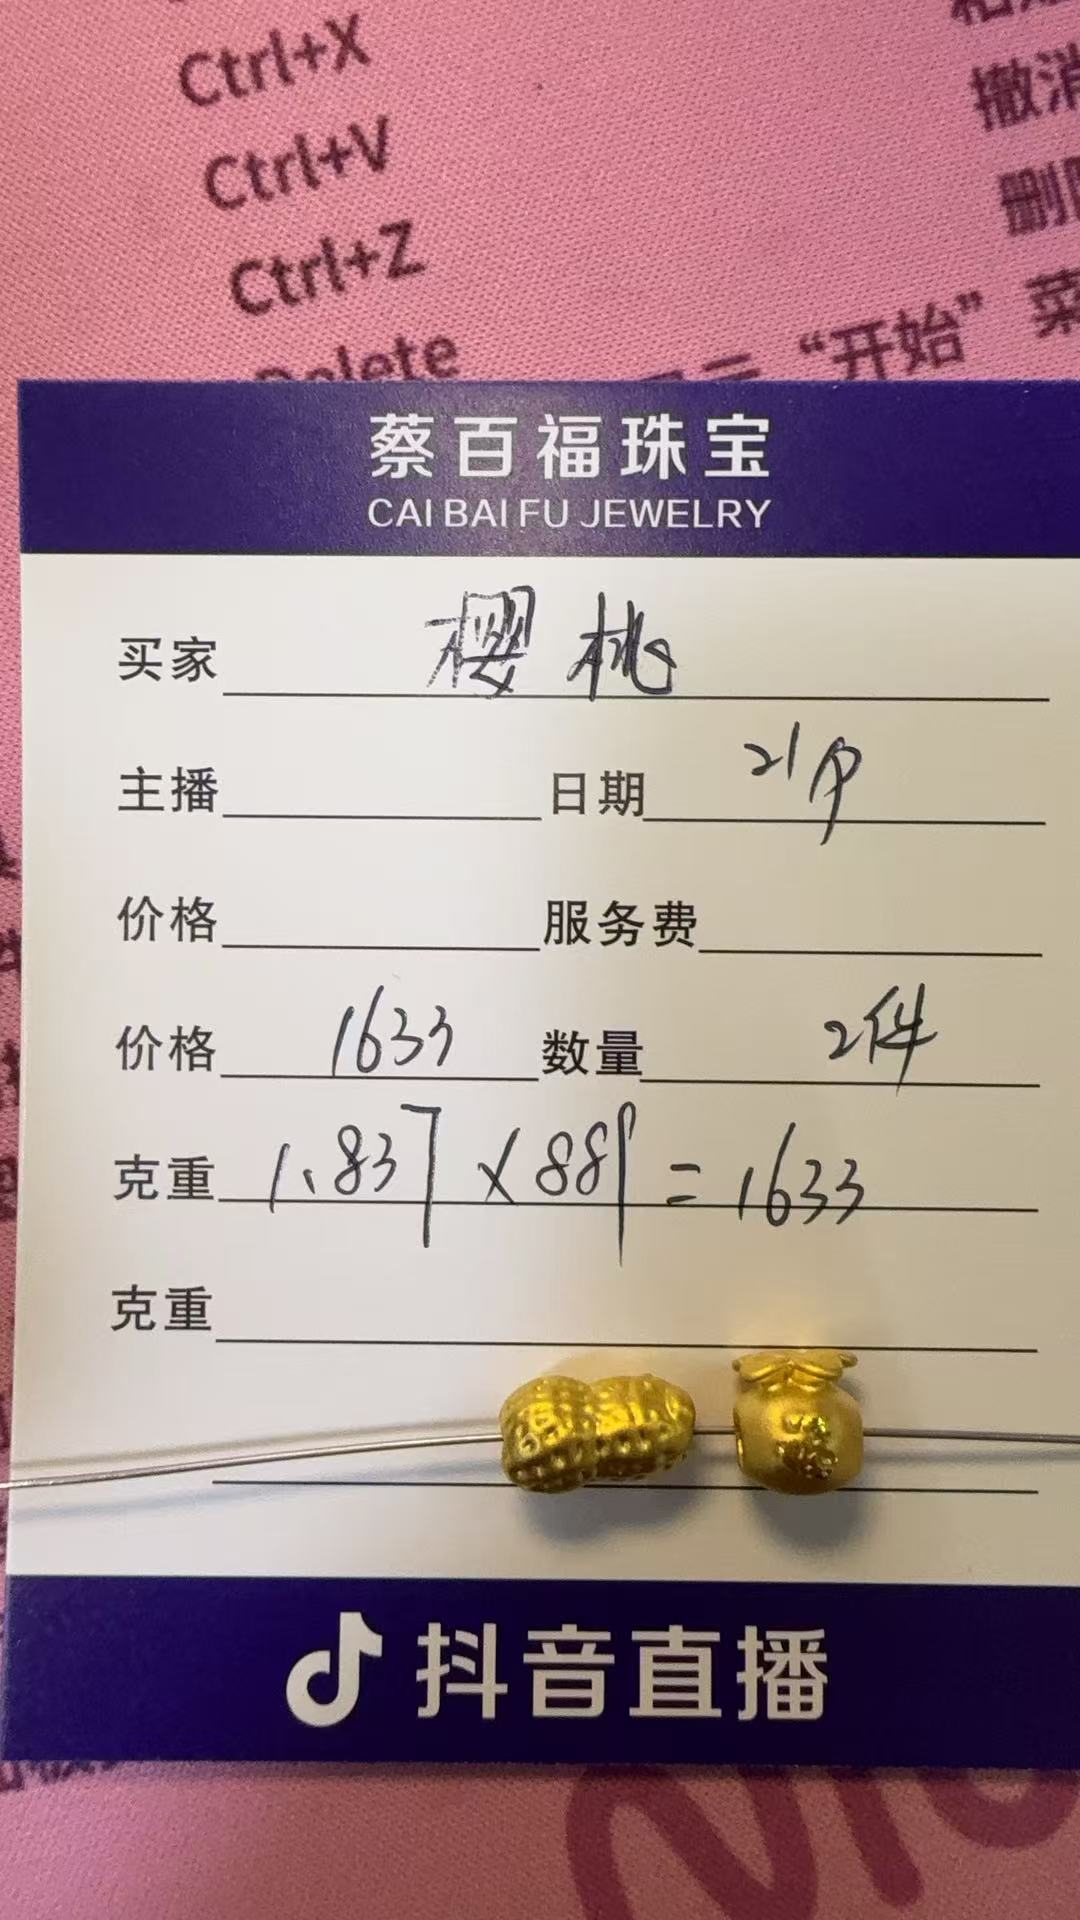 Ctrl+X
Ctrl+V
撤消
Ctrl+Z
Delete
“开始”菜
蔡百福珠宝
CAI BAI FU JEWELRY
买家 樱桃
主播 日期 21号
价格 服务费
价格 1633 数量 2件
克重 1.837×889=1633
克重
抖音直播